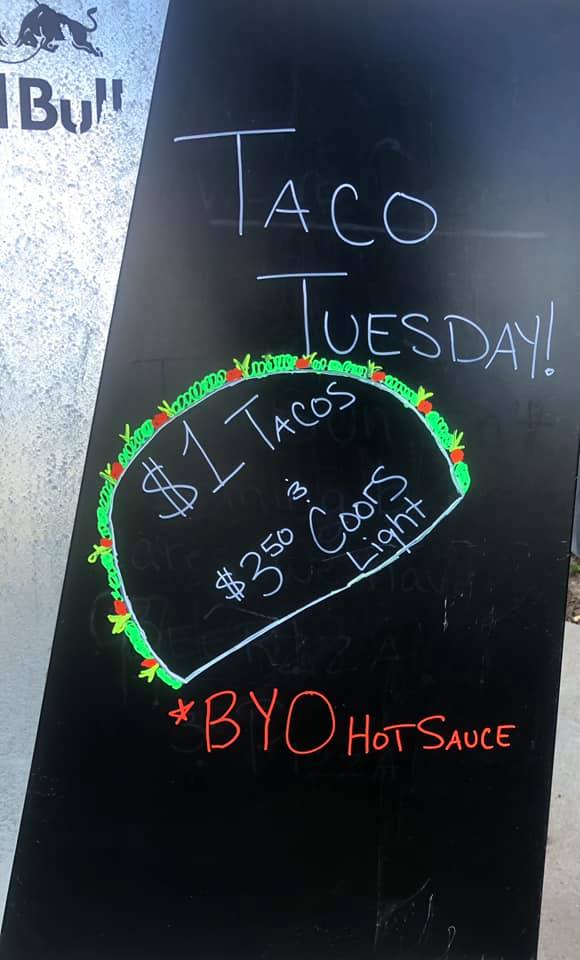 d Bull
TACO
TUESDAY!
$1 TACOS
&
$3.50 Coors
Light
*BYO HOT SAUCE